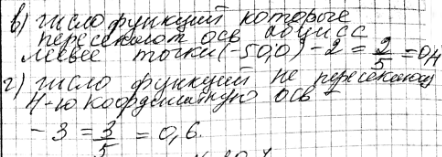 в) число функций которые
пересекают ось абцисс
левее точки (-50,0) - 2 = 2/5 = 0,4
г) число функций не пересекающ
4-ю координатную ось -
- 3 = 3/5 = 0,6.